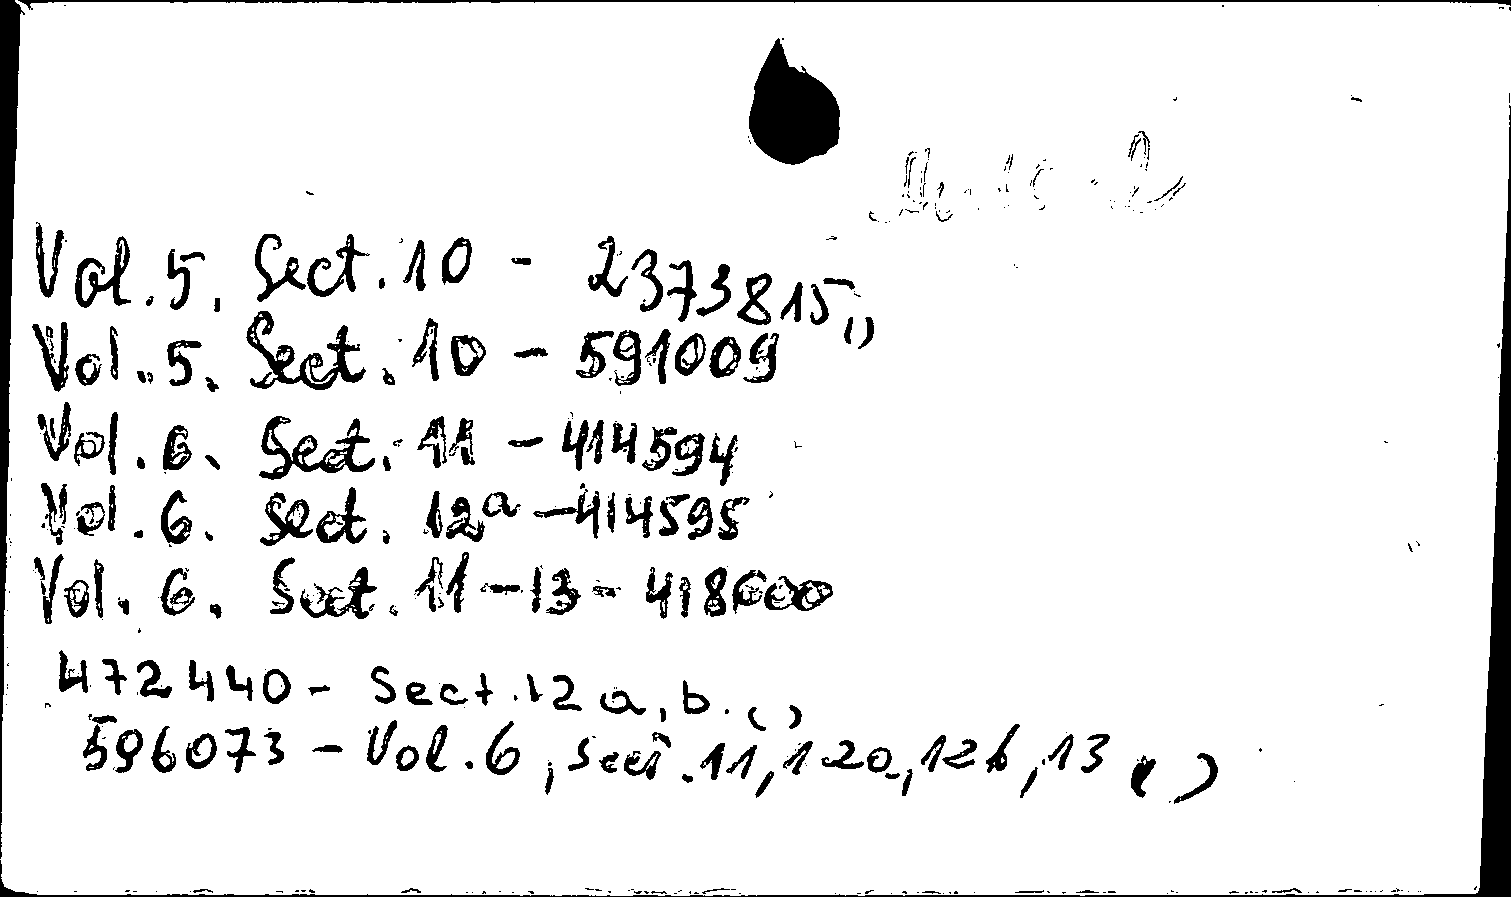 Vol. 5. Sect. 10 - 2373815,,
Vol. 5. Sect. 10 - 591009
Vol. 6. Sect. 11 - 414594
Vol. 6. Sect. 12a - 414595
Vol. 6. Sect. 11-13- 418600
472440 - Sect. 12 a, b. ( )
596073 - Vol. 6, Sect. 11, 12a, 12b, 13 ( )